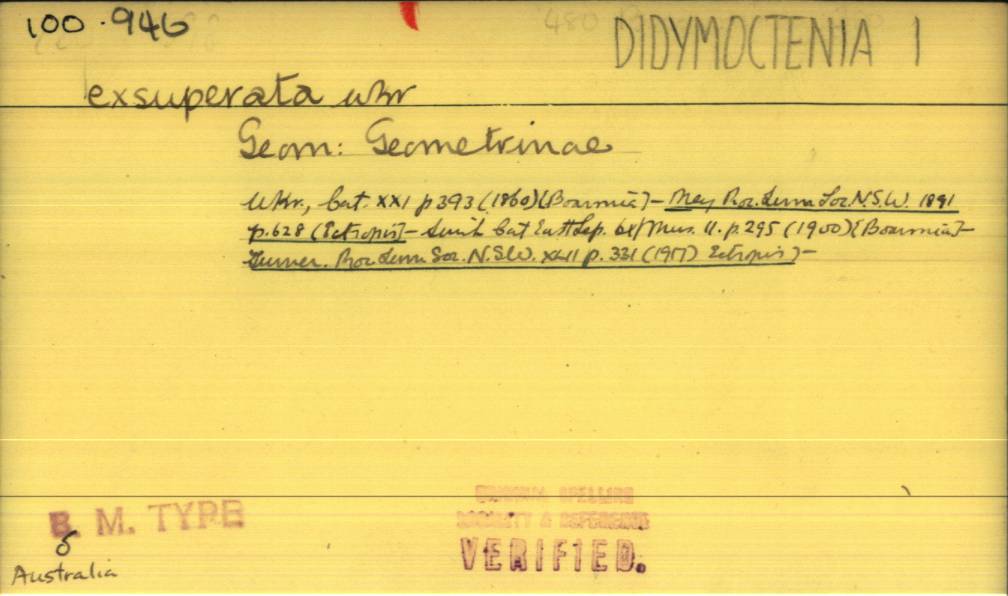 100.946
DIDYMOCTENIA 1
exsuperata wkr
Geom: Geometrinae
Wkr., Cat. XXI p 393 (1860) [Boarmia] – Mey, Proc. Linn Soc. N.S.W. 1891
p. 628 (Ectropis] – Swinh Cat East Lep. Mus. II. p. 295 (1900) [Boarmia] –
Turner. Proc Linn Soc. N.S.W. XLII p. 331 (1917) Ectropis) –
B. M. TYPE
♂
Australia
ORIGINAL SPELLING
LOCALITY & REFERENCE
VERIFIED.